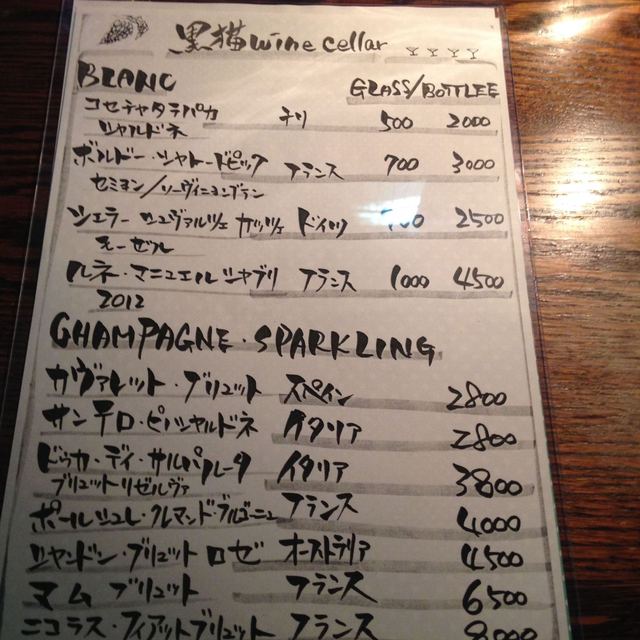 黒猫 wine cellar
BLANC GLASS/BOTTLEE
コセチャタラパカ チリ 500 2000
シャルドネ
ボルドー・シャトードピック フランス 700 3000
セミヨン/ソーヴィニヨンブラン
シェラー シュヴァルツェ カッツェ ドイツ 2500
モーゼル
ルネ・マニュエルシャブリ フランス 1000 4500
2012
CHAMPAGNE・SPARKLING
カヴァレット・ブリュット スペイン 2800
サンテロ・ピノシャルドネ イタリア 2800
ドゥカ・ディ・サルパルータ イタリア 3800
ブリュットリゼルヴァ
ポールシュレ・クレマンドブルゴーニュ フランス 4000
シャンドン・ブリュット ロゼ オーストラリア 4500
マム ブリュット フランス 6500
ニコラス・フィアットブリュット フランス 8000